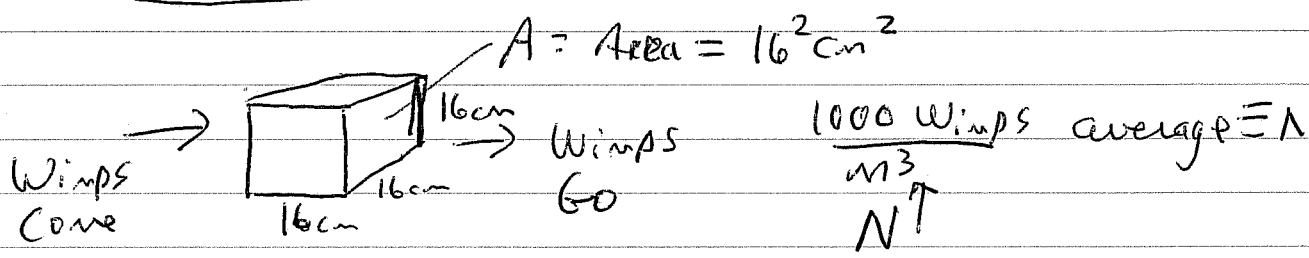 A = Area = 16² cm²
16cm
16cm
16cm
Wimps
Come
Wimps
Go
1000 Wimps
m³
average ≡ N
N